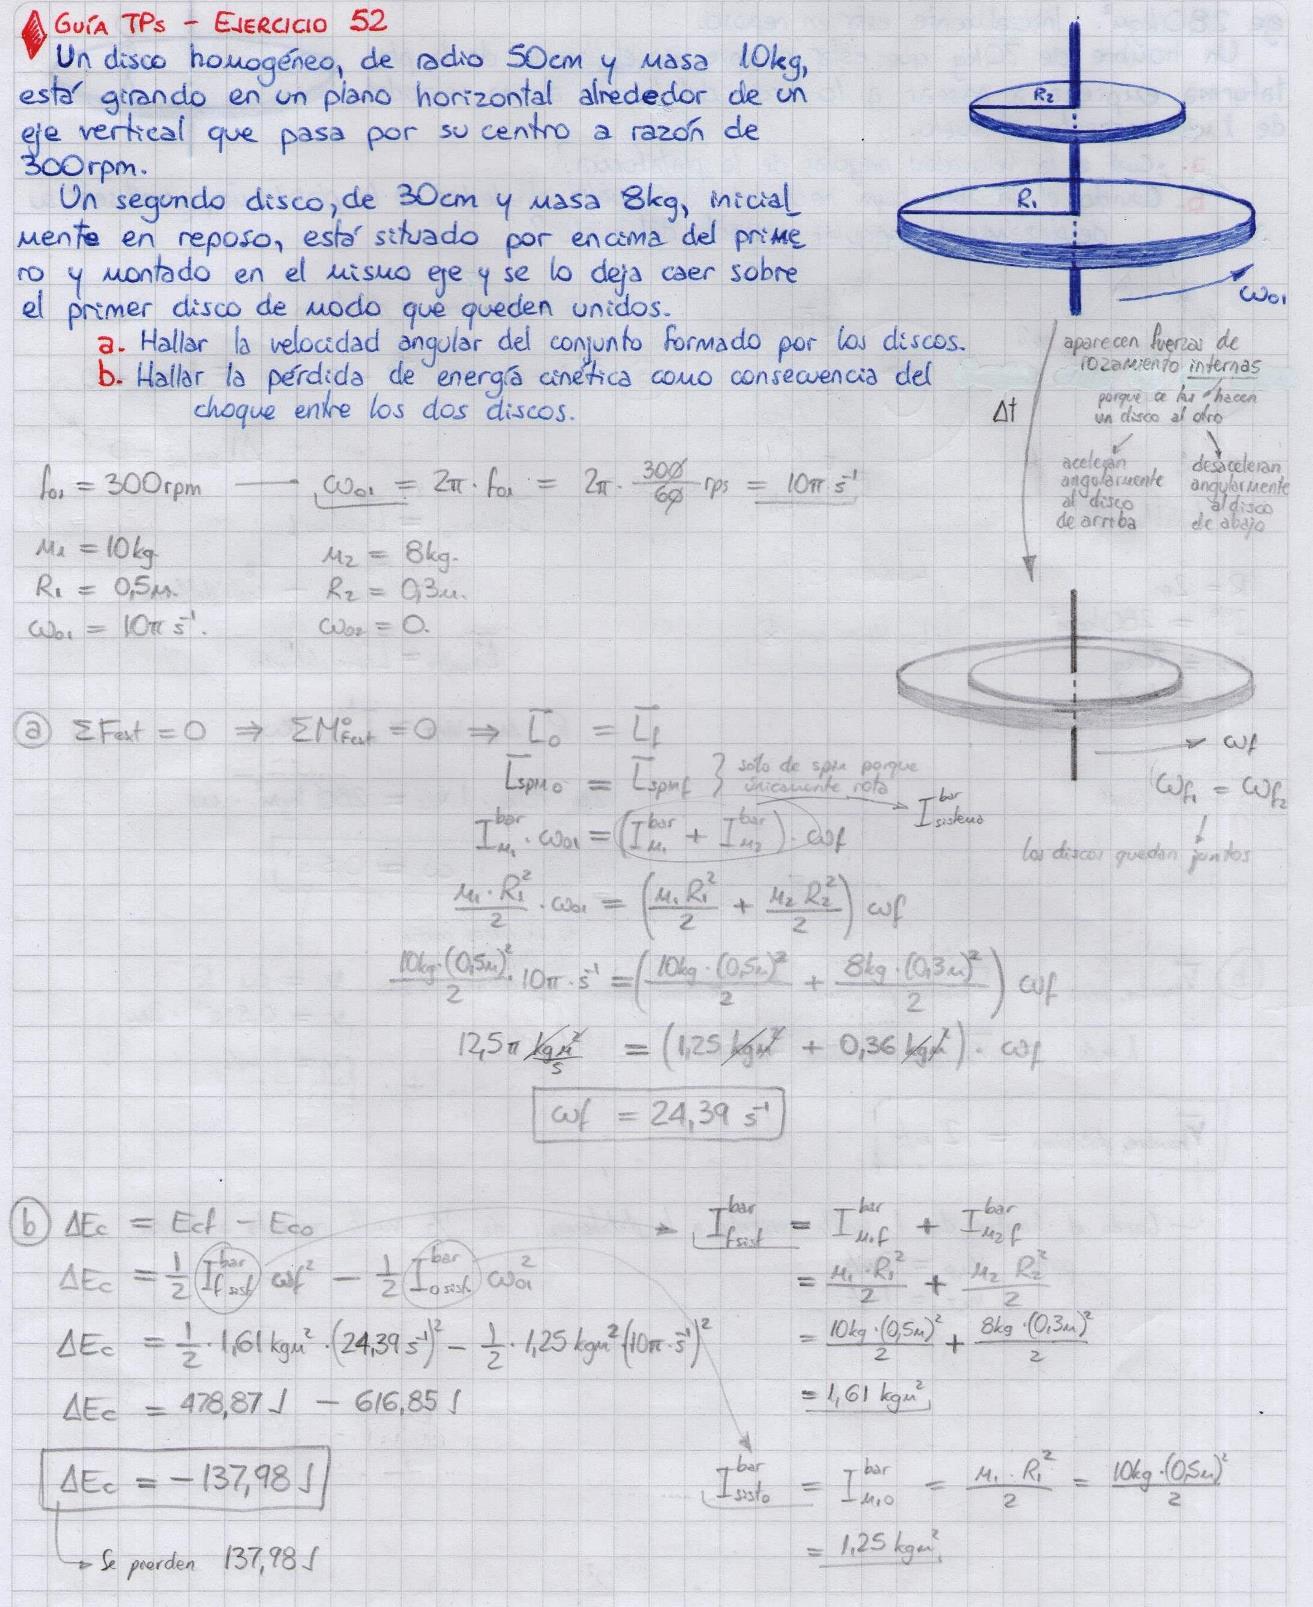 GUÍA TPs - EJERCICIO 52
Un disco homogéneo, de radio 50cm y masa 10kg,
está girando en un plano horizontal alrededor de un
eje vertical que pasa por su centro a razón de
300rpm.
Un segundo disco, de 30cm y masa 8kg, inicial
mente en reposo, está situado por encima del prime
ro y montado en el mismo eje y se lo deja caer sobre
el primer disco de modo que queden unidos.
a. Hallar la velocidad angular del conjunto formado por los discos.
b. Hallar la pérdida de energía cinética como consecuencia del
choque entre los dos discos.
R₂
R₁
ω₀₁
aparecen fuerzas de
rozamiento internas
porque se las hacen
un disco al otro
Δt
aceleran
angularmente
al disco
de arriba
desaceleran
angularmente
al disco
de abajo
f₀₁ = 300rpm — ω₀₁ = 2π · f₀₁ = 2π · 300/60 rps = 10π s⁻¹
M₁ = 10kg. M₂ = 8kg.
R₁ = 0,5m. R₂ = 0,3m.
ω₀₁ = 10π s⁻¹. ω₀₂ = 0.
ωf
ωf₁ = ωf₂
los discos quedan juntos
a ΣFext = 0 ⇒ ΣM°Fext = 0 ⇒ L̄₀ = L̄f
L̄spm₀ = L̄spmf } solo de spm porque
únicamente rota
I^bar_M₁ · ω₀₁ = (I^bar_M₁ + I^bar_M₂) · ωf → I^bar_sistema
M₁·R₁²/2 · ω₀₁ = (M₁R₁²/2 + M₂R₂²/2) ωf
10kg·(0,5m)²/2 · 10π·s⁻¹ = (10kg·(0,5m)²/2 + 8kg·(0,3m)²/2) ωf
12,5π kgm²/s = (1,25 kgm² + 0,36 kgm²) · ωf
ωf = 24,39 s⁻¹
b ΔEc = Ecf - Eco
ΔEc = 1/2 I^bar_f sist ωf² - 1/2 I^bar_0 sist ω₀₁²
ΔEc = 1/2 · 1,61 kgm² · (24,39 s⁻¹)² - 1/2 · 1,25 kgm² (10π·s⁻¹)²
ΔEc = 478,87 J - 616,85 J
ΔEc = -137,98 J
Se pierden 137,98 J
I^bar_f sist = I^bar_M₁f + I^bar_M₂f
= M₁·R₁²/2 + M₂ R₂²/2
= 10kg·(0,5m)²/2 + 8kg·(0,3m)²/2
= 1,61 kgm²
I^bar_sist0 = I^bar_M₁0 = M₁·R₁²/2 = 10kg·(0,5m)²/2
= 1,25 kgm²